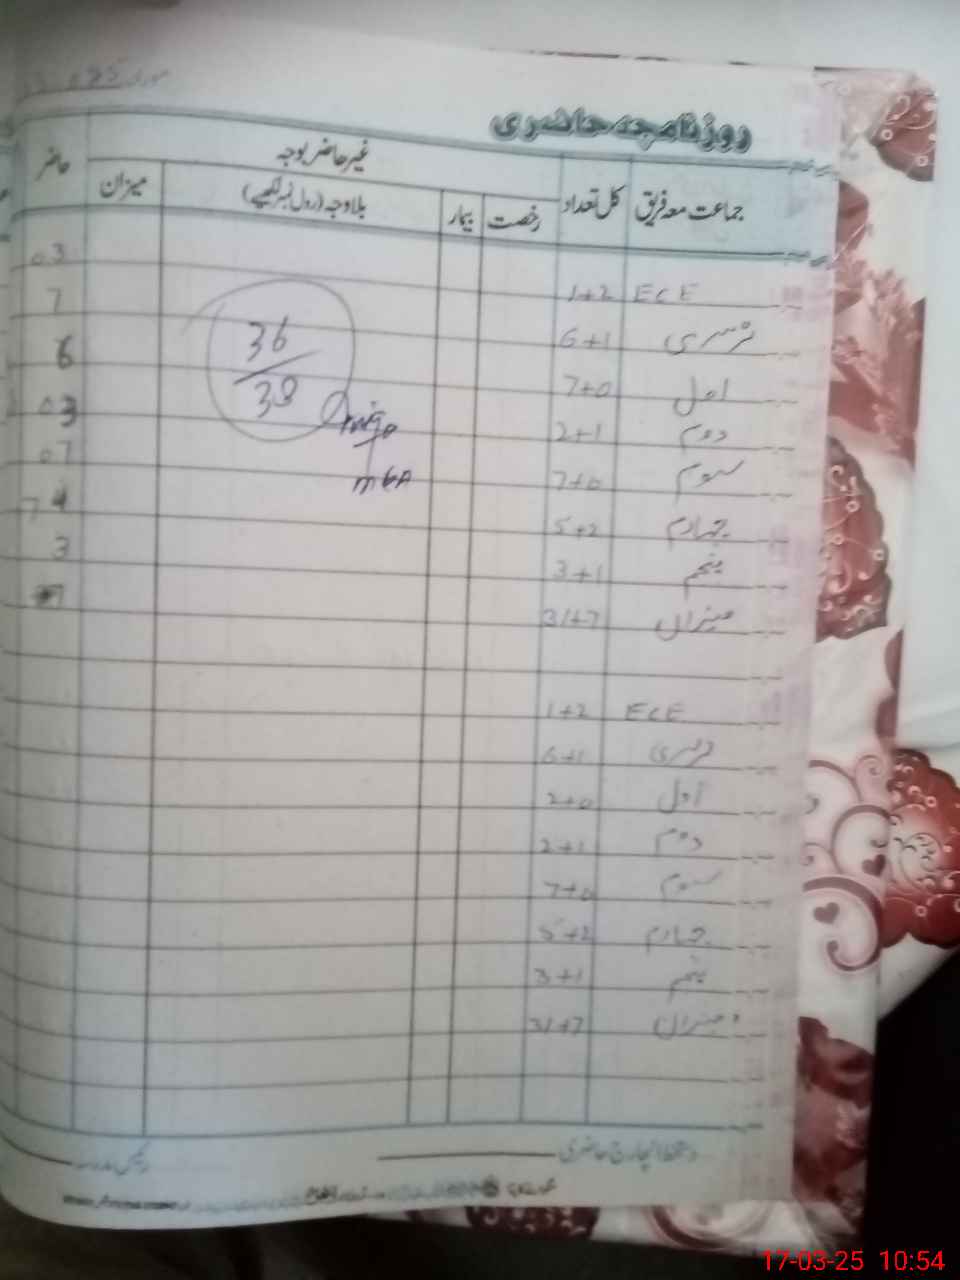 روزنامچہ حاضری
جماعت معہ فریق کل تعداد غیر حاضر بوجہ حاضر
رخصت بیمار بلاوجہ (رول نمبر لکھیے) میزان
ECE 1+2 03
نرسری 6+1 7
اول 7+0 6
دوم 2+1 03
سوم 7+0 07
چہارم 5+2
پنجم 3+1 3
میزان 31+7
36
38
ECE 1+2
نرسری 6+1
اول 7+0
دوم 2+1
سوم 7+0
چہارم 5+2
پنجم 3+1
میزان 31+7
دستخط انچارج حاضری
17-03-25 10:54